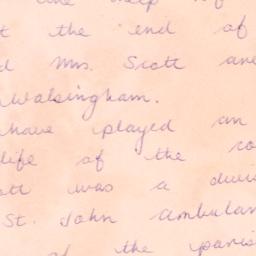 the help of
t the end of
d Mrs. Scott are
Walsingham.
have played an
life of the co
ott was a
St. John ambulan
of the paris